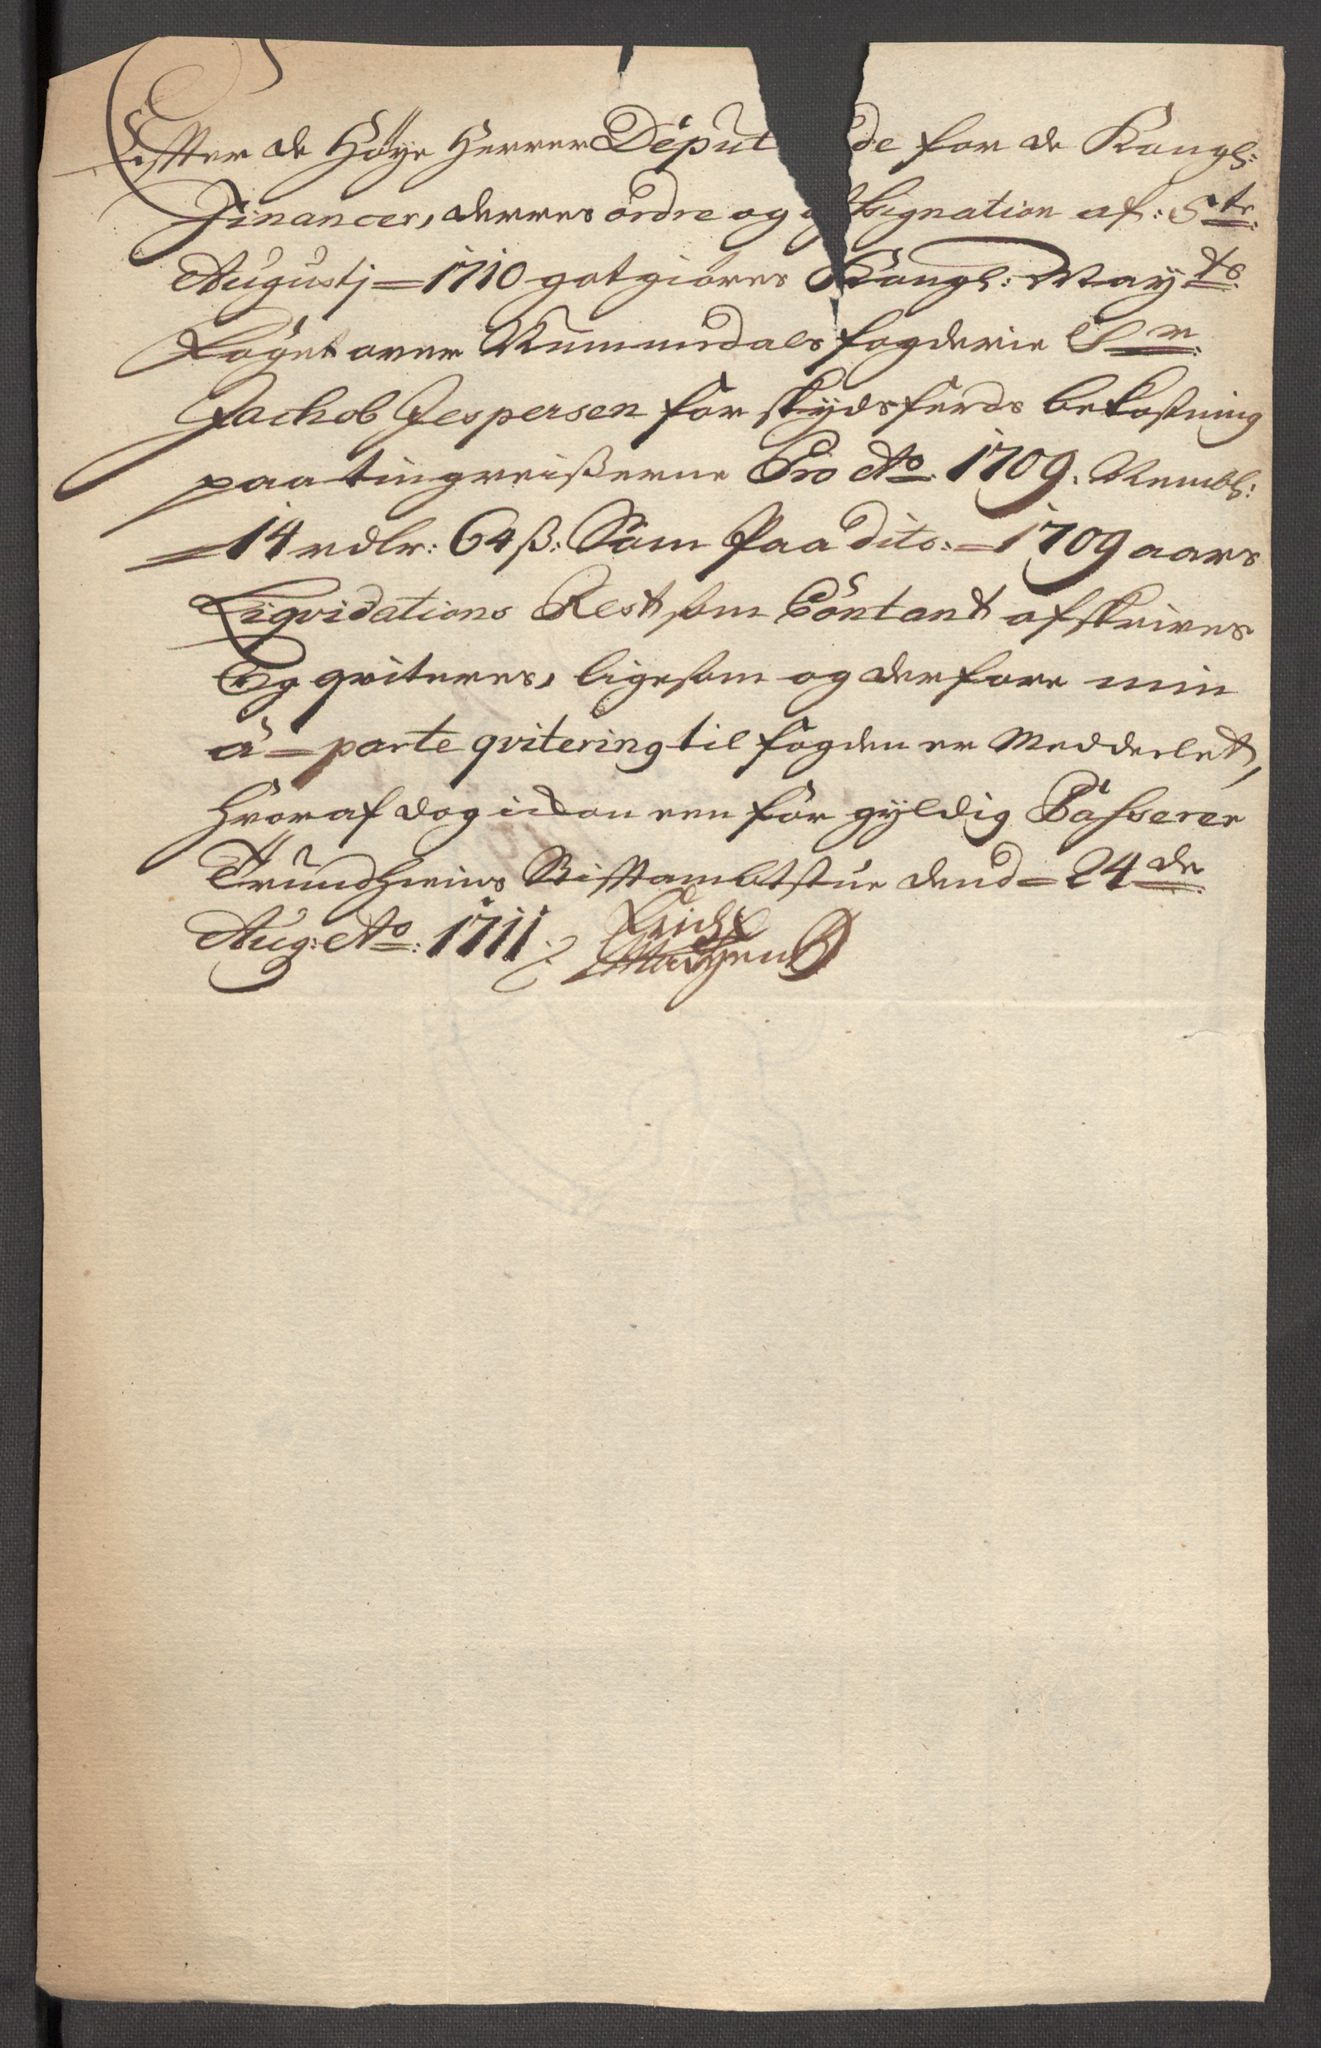 Effter de Høye Herrer Deput de for de Kongl:
Financer, derres ordre og assignation af: 5te:
Augustj = 1710 gotgiøres Kongl: May:ts
Foget over Nummedals fogderie Sr:
Jachob Jespersen for skydsferds bekostning
paa tingreiserne Pro Ao: 1709. Nembl:
= 14 rdlr: 64 ß: Som Paa dito = 1709 aars
Liqvidations Rest som Contant afskrives
Og qviteres, ligesom og derfore min
a = parte qvitering til fogden er Meddeelet,
hvoraf dog een for gyldig Passerer
Trundhiems Stifftambtstue dend = 24de:
Aug: Ao: 1711.